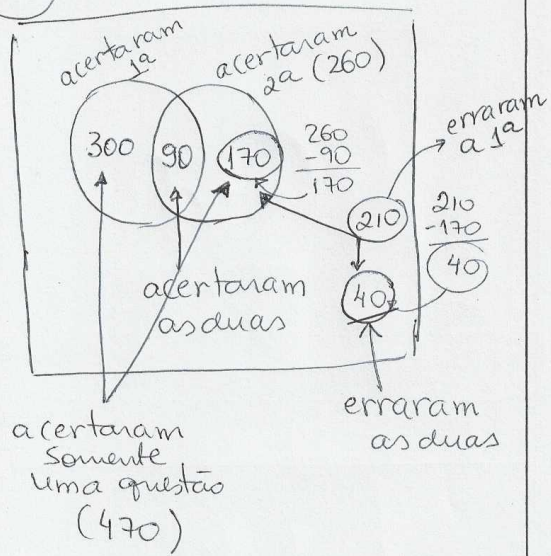 acertaram
1ª
acertaram
2a (260)
erraram
a 1ª
300
90
170
260
-90
170
210
210
-170
40
40
acertaram
as duas
erraram
as duas
acertaram
somente
uma questão
(470)